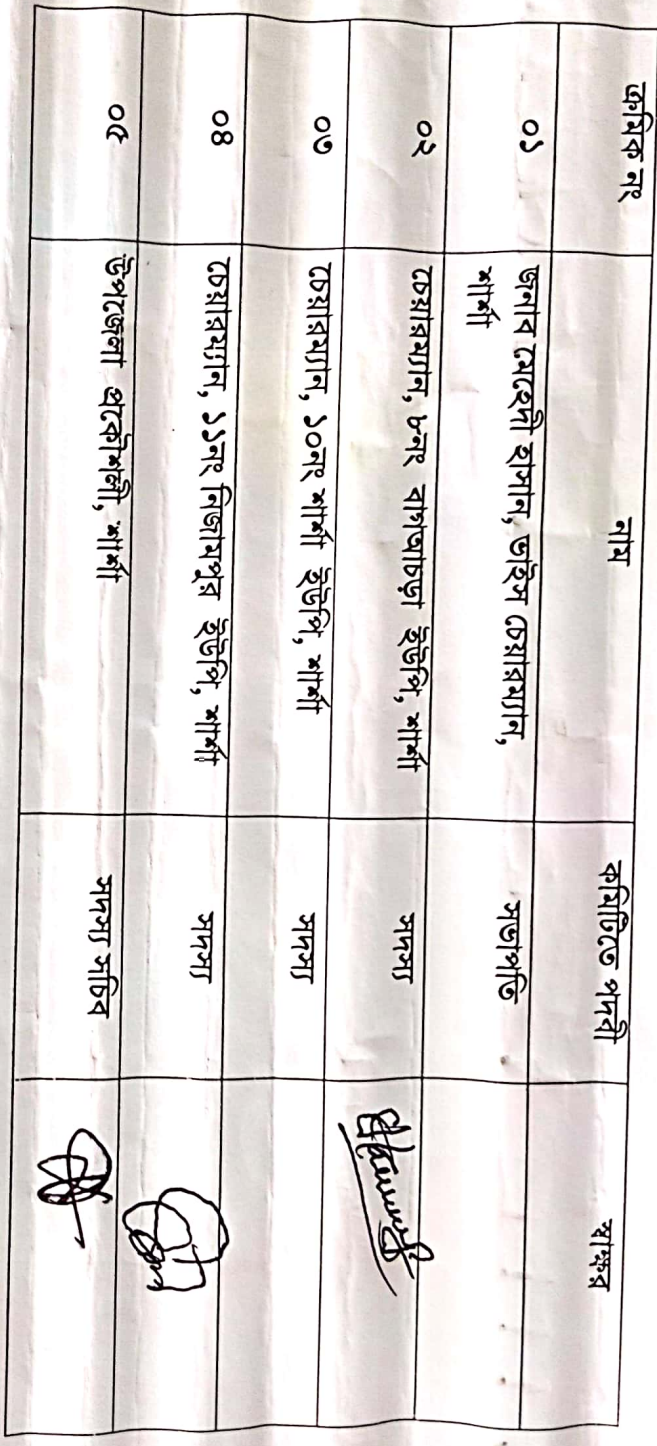 ক্রমিক নং নাম কমিটিতে পদবী স্বাক্ষর
০১ জনাব মেহেদী হাসান, ভাইস চেয়ারম্যান, শার্শা সভাপতি
০২ চেয়ারম্যান, ৮নং বাগআচড়া ইউপি, শার্শা সদস্য
০৩ চেয়ারম্যান, ১০নং শার্শা ইউপি, শার্শা সদস্য
০৪ চেয়ারম্যান, ১১নং নিজামপুর ইউপি, শার্শা সদস্য
০৫ উপজেলা প্রকৌশলী, শার্শা সদস্য সচিব